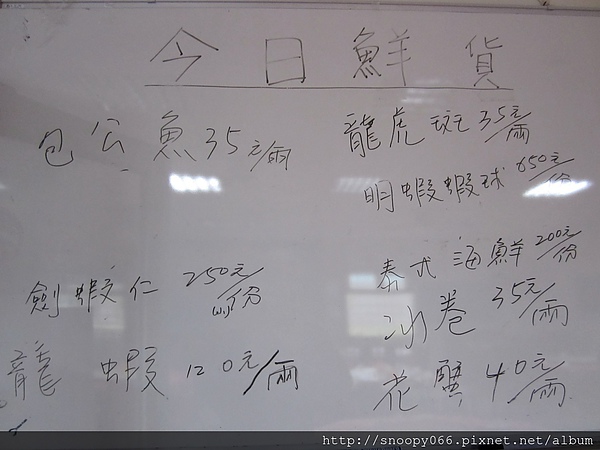 今日鮮貨
包公魚35元/兩
龍虎斑35元/兩
明蝦蝦球 650元/份
劍蝦仁 250元/份(小)
泰式海鮮 200元/份
冰卷 35元/兩
龍蝦120元/兩
花蟹40元/兩
http://snoopy066.pixnet.net/album